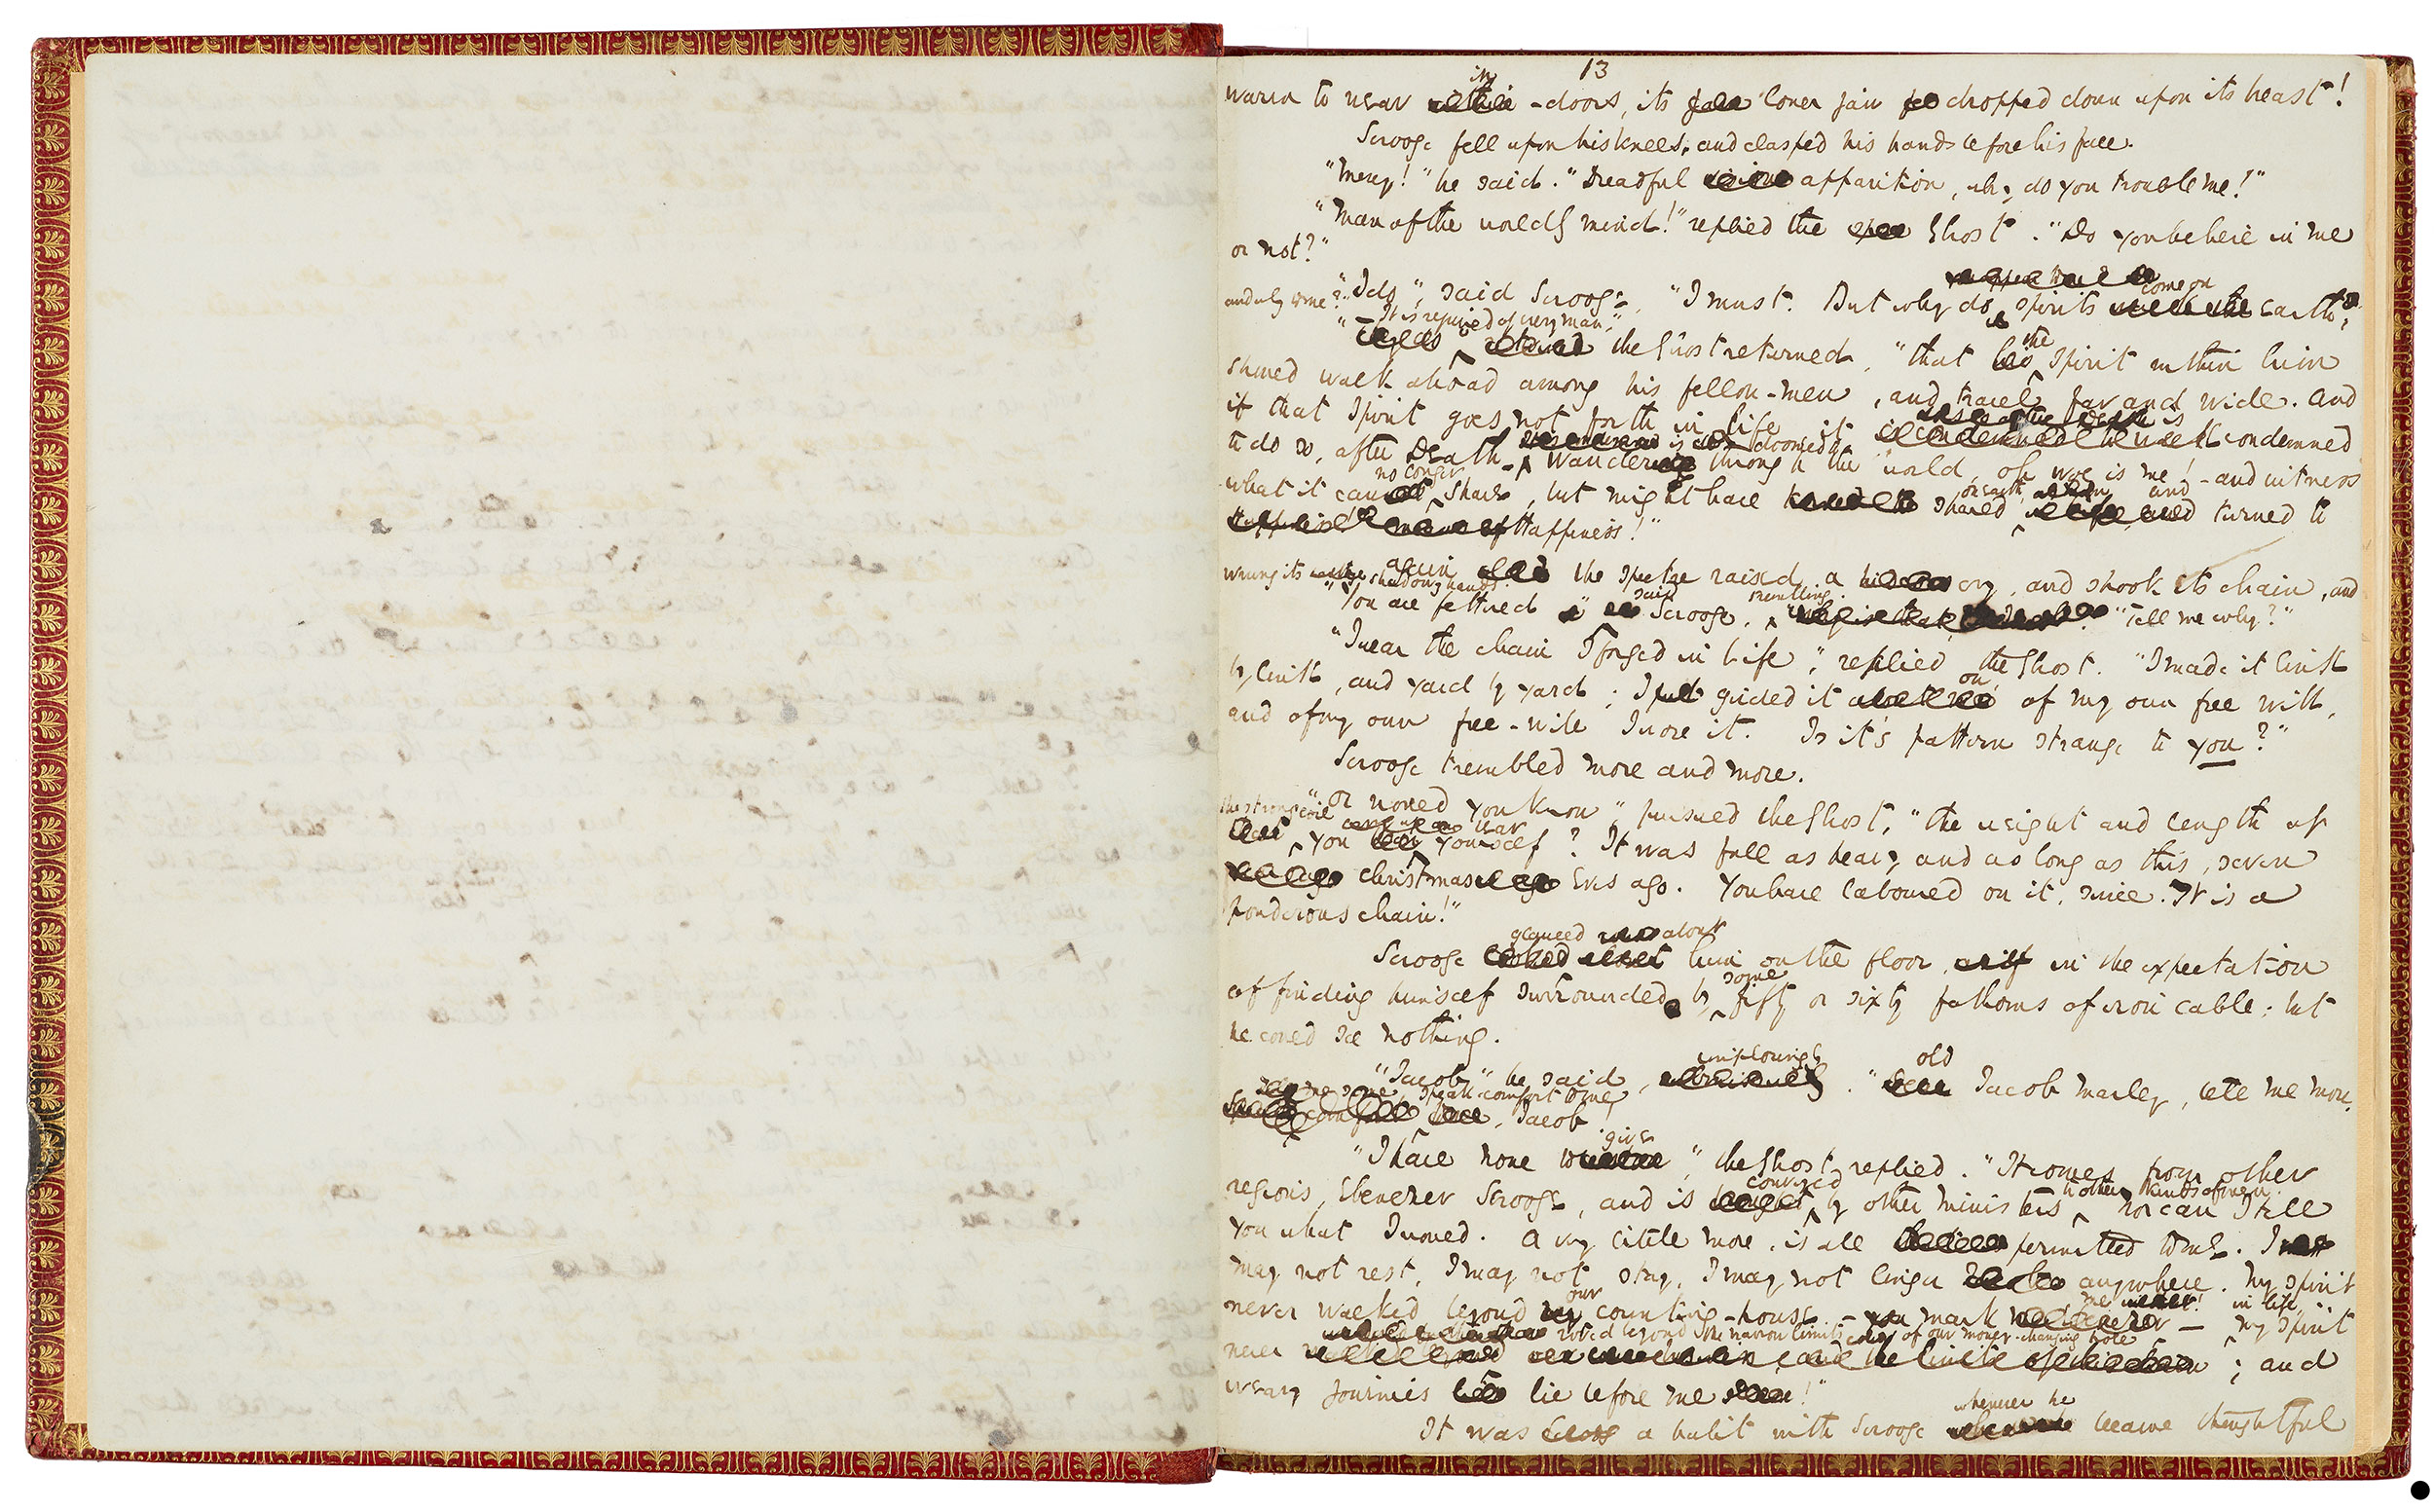 13
warm to wear in-doors, its lower jaw dropped down upon its breast!
Scrooge fell upon his knees, and clasped his hands before his face.
"Mercy!" he said. "Dreadful apparition, why do you trouble me!"
"Man of the worldly mind!" replied the Ghost. "Do you believe in me
or not?"
"I do", said Scrooge, "I must. But why do spirits come on earth,
and why to me?"
"It is required of every man," the Ghost returned, "that the spirit within him
should walk abroad among his fellow-men, and travel far and wide. And
if that spirit goes not forth in life, it is condemned
to do so, after Death. doomed to wander through the world, oh woe is me! - and witness
what it cannot no longer share, but might have shared on earth, and turned to
Happiness!"
again the spectre raised a cry, and shook its chain, and
wrung its shadowy hands.
"You are fettered" said Scrooge, trembling. "Tell me why?"
"I wear the chain I forged in life," replied the Ghost. "I made it link
by link, and yard by yard; I girded it on of my own free will,
and of my own free-will I wore it. Is it's pattern strange to you?"
Scrooge trembled more and more.
"Or would you know," pursued the Ghost, "the weight and length of
the strong coil you bear yourself? It was full as heavy and as long as this, seven
Christmas Eves ago. You have laboured on it, since. It is a
ponderous chain!"
Scrooge glanced about him on the floor, in the expectation
of finding himself surrounded by some fifty or sixty fathoms of iron cable; but
he could see nothing.
"Jacob," he said, imploringly. "old Jacob Marley, tell me more.
speak comfort to me, Jacob!
"I have none to give," the Ghost replied. "It comes from other
regions, Ebenezer Scrooge, and is conveyed by other ministers, to other kinds of men. Nor can I tell
you what I would. A very little more, is all permitted to me. I
may not rest, I may not stay, I may not linger anywhere. My spirit
never walked beyond our counting-house - mark me! - in life, my spirit
never roved beyond the narrow limits of our money-changing hole; and
weary journies lie before me!"
It was a habit with Scrooge whenever he became thoughtful